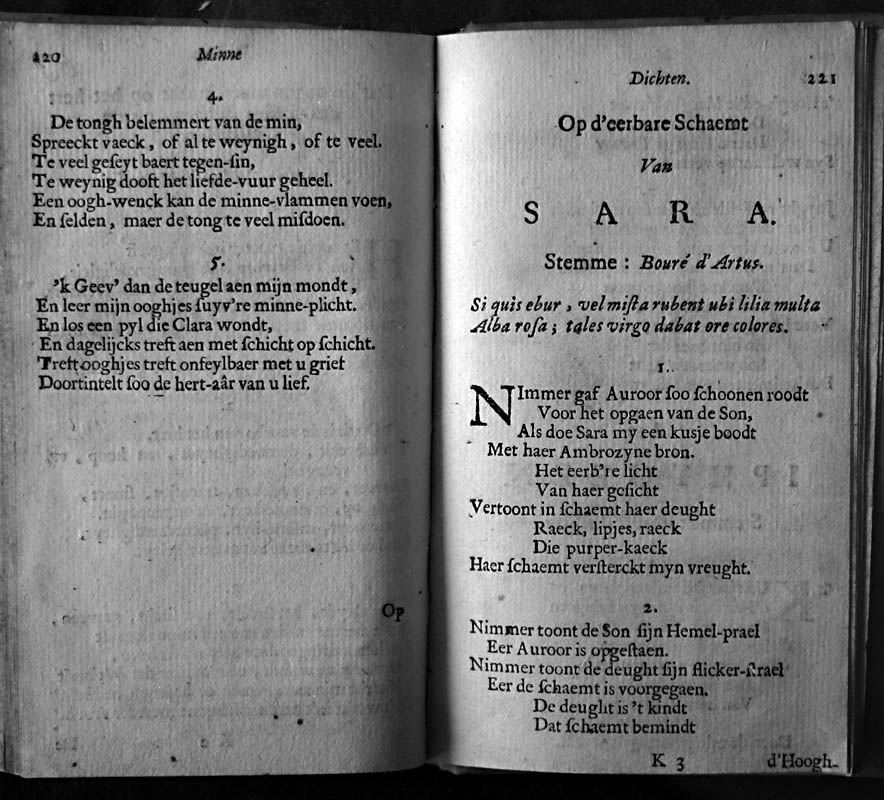 220 Minne
4.
De tongh belemmert van de min,
Spreeckt vaeck, of al te weynigh, of te veel.
Te veel geſeyt baert tegen-ſin,
Te weynig dooft het liefde-vuur geheel.
Een oogh-wenck kan de minne-vlammen voen,
En ſelden, maer de tong te veel miſdoen.
5.
'k Geev' dan de teugel aen mijn mondt,
En leer mijn ooghjes ſuyv're minne-plicht.
En los een pyl die Clara wondt,
En dagelijcks treft aen met ſchicht op ſchicht.
Treft ooghjes treft onfeylbaer met u grief
Doortintelt ſoo de hert-aâr van u lief.
Op
Dichten. 221
Op d'eerbare Schaemt
Van
S A R A.
Stemme: Bouré d'Artus.
Si quis ebur, vel miſta rubent ubi lilia multa
Alba roſa; tales virgo dabat ore colores.
1.
NImmer gaf Auroor ſoo ſchoonen roodt
Voor het opgaen van de Son,
Als doe Sara my een kusje boodt
Met haer Ambrozyne bron.
Het eerb're licht
Van haer geſicht
Vertoont in ſchaemt haer deught
Raeck, lipjes, raeck
Die purper-kaeck
Haer ſchaemt verſterckt myn vreught.
2.
Nimmer toont de Son ſijn Hemel-prael
Eer Auroor is opgeſtaen.
Nimmer toont de deught ſijn flicker-ſtrael
Eer de ſchaemt is voorgegaen.
De deught is 't kindt
Dat ſchaemt bemindt
K 3 d'Hoogh-